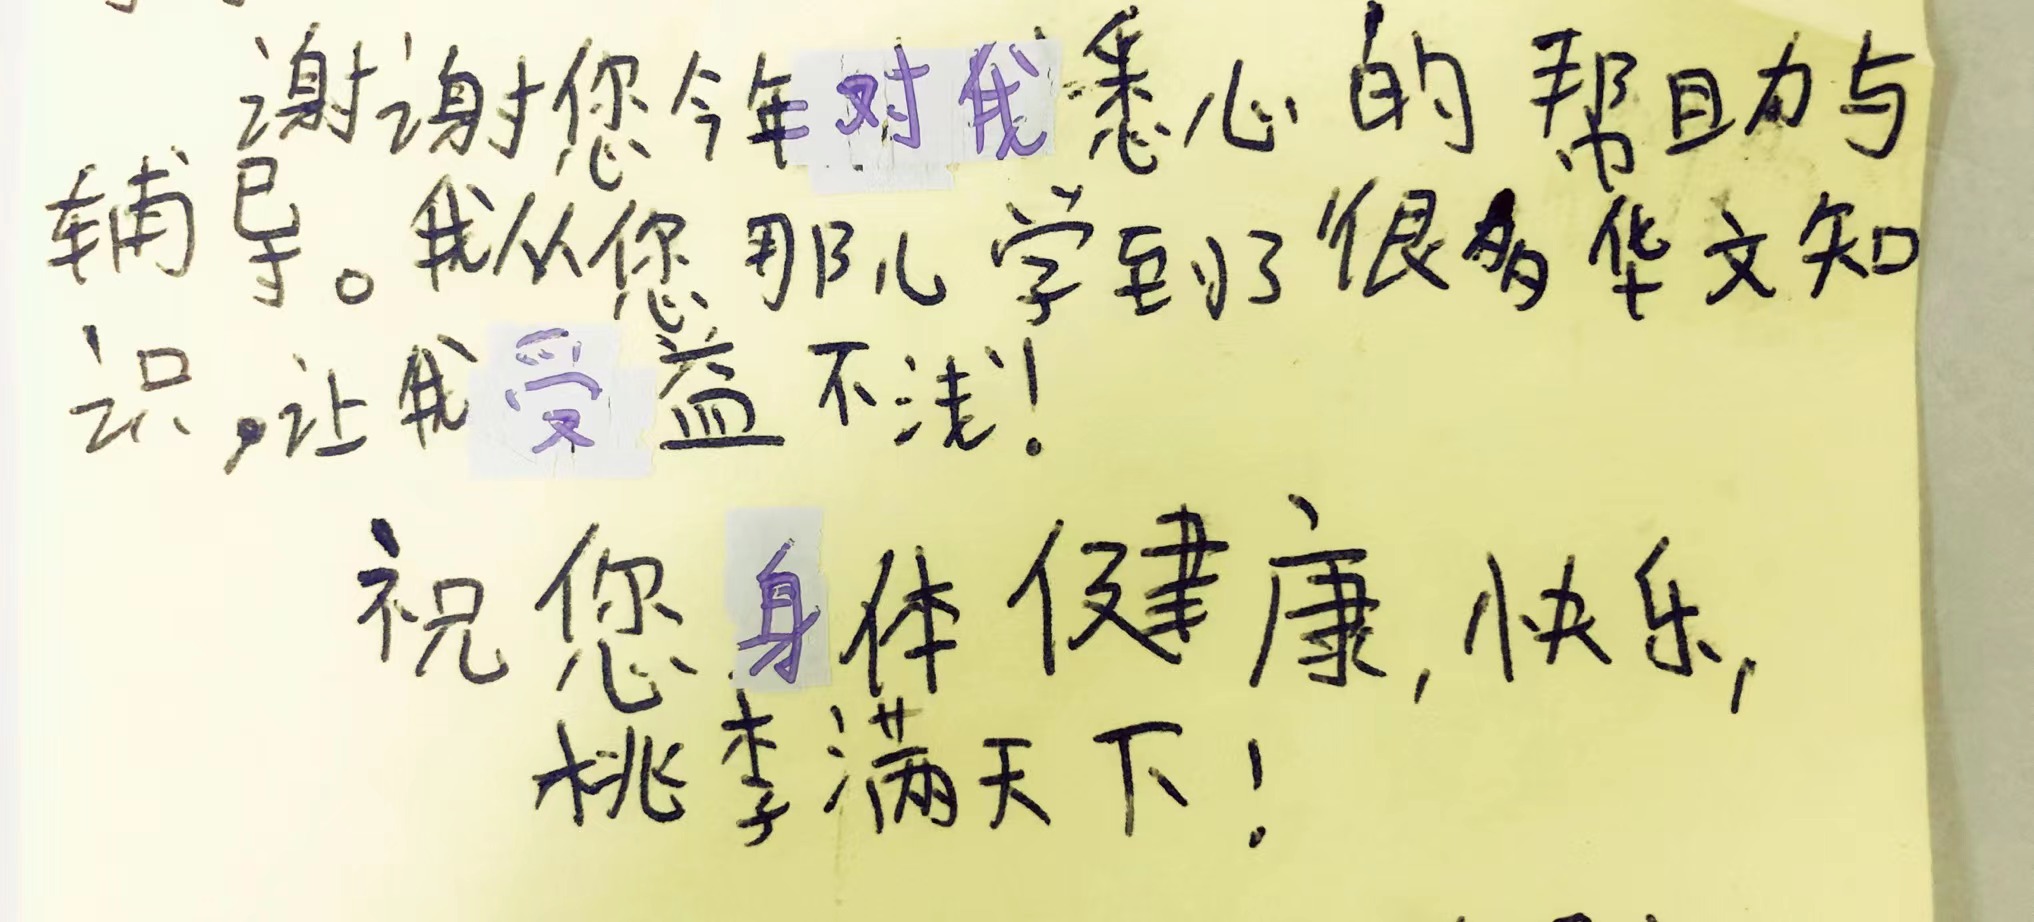 谢谢您今年对我悉心的帮助与
辅导。我从您那儿学到了很多华文知
识,让我受益不浅!
祝您身体健康,快乐,
桃李满天下!